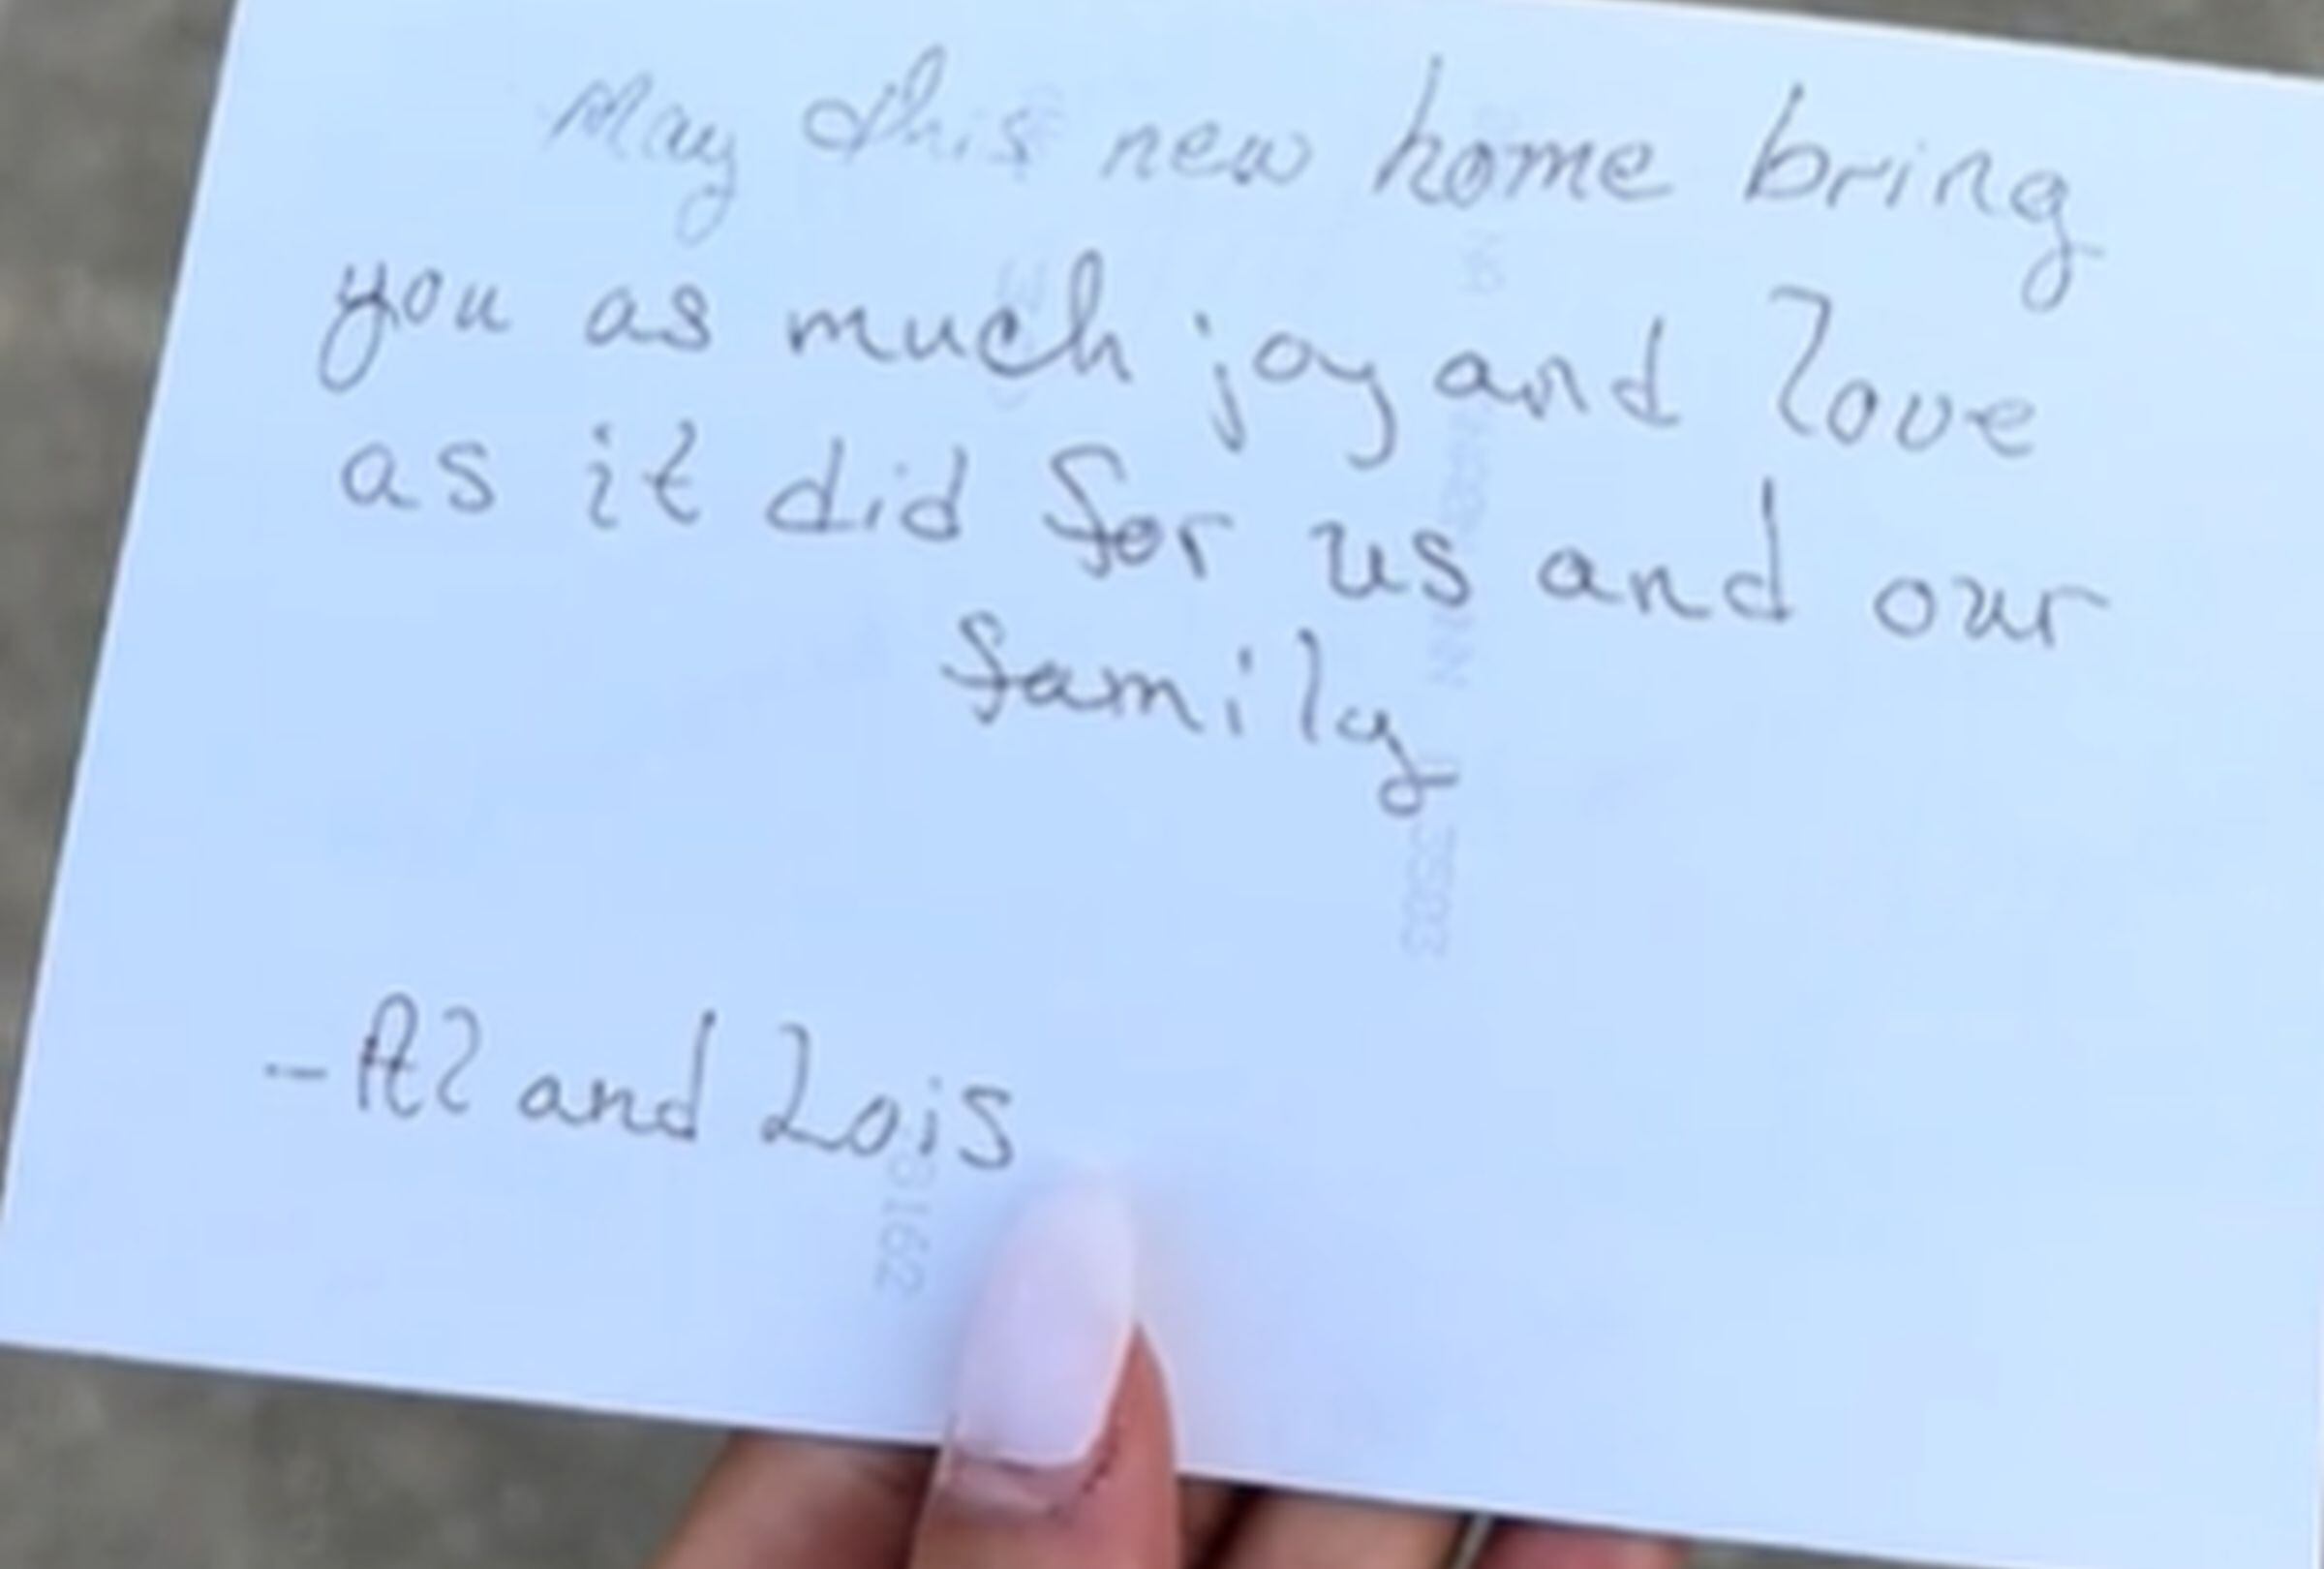 May this new home bring
you as much joy and love
as it did for us and our
family
-Al and Lois